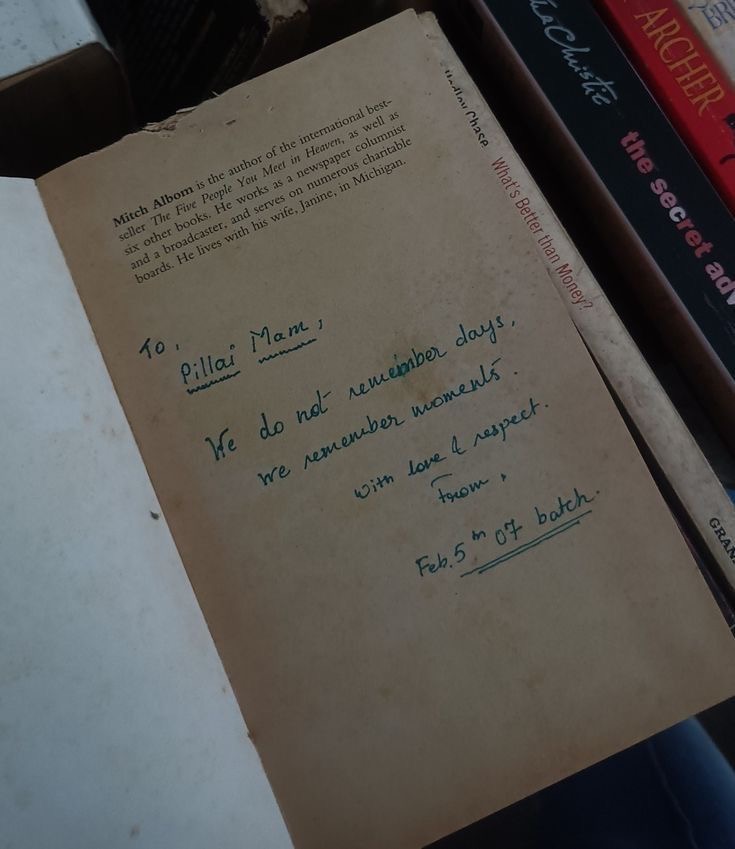 Mitch Albom is the author of the international best-
seller The Five People You Meet in Heaven, as well as
six other books. He works as a newspaper columnist
and a broadcaster, and serves on numerous charitable
boards. He lives with his wife, Janine, in Michigan.
To,
Pillai Mam,
We do not remember days,
we remember moments.
with love & respect.
From,
Feb. 5th 07 batch.
Hadley Chase
What's Better than Money?
GRAN
Christie
the secret adv
ARCHER